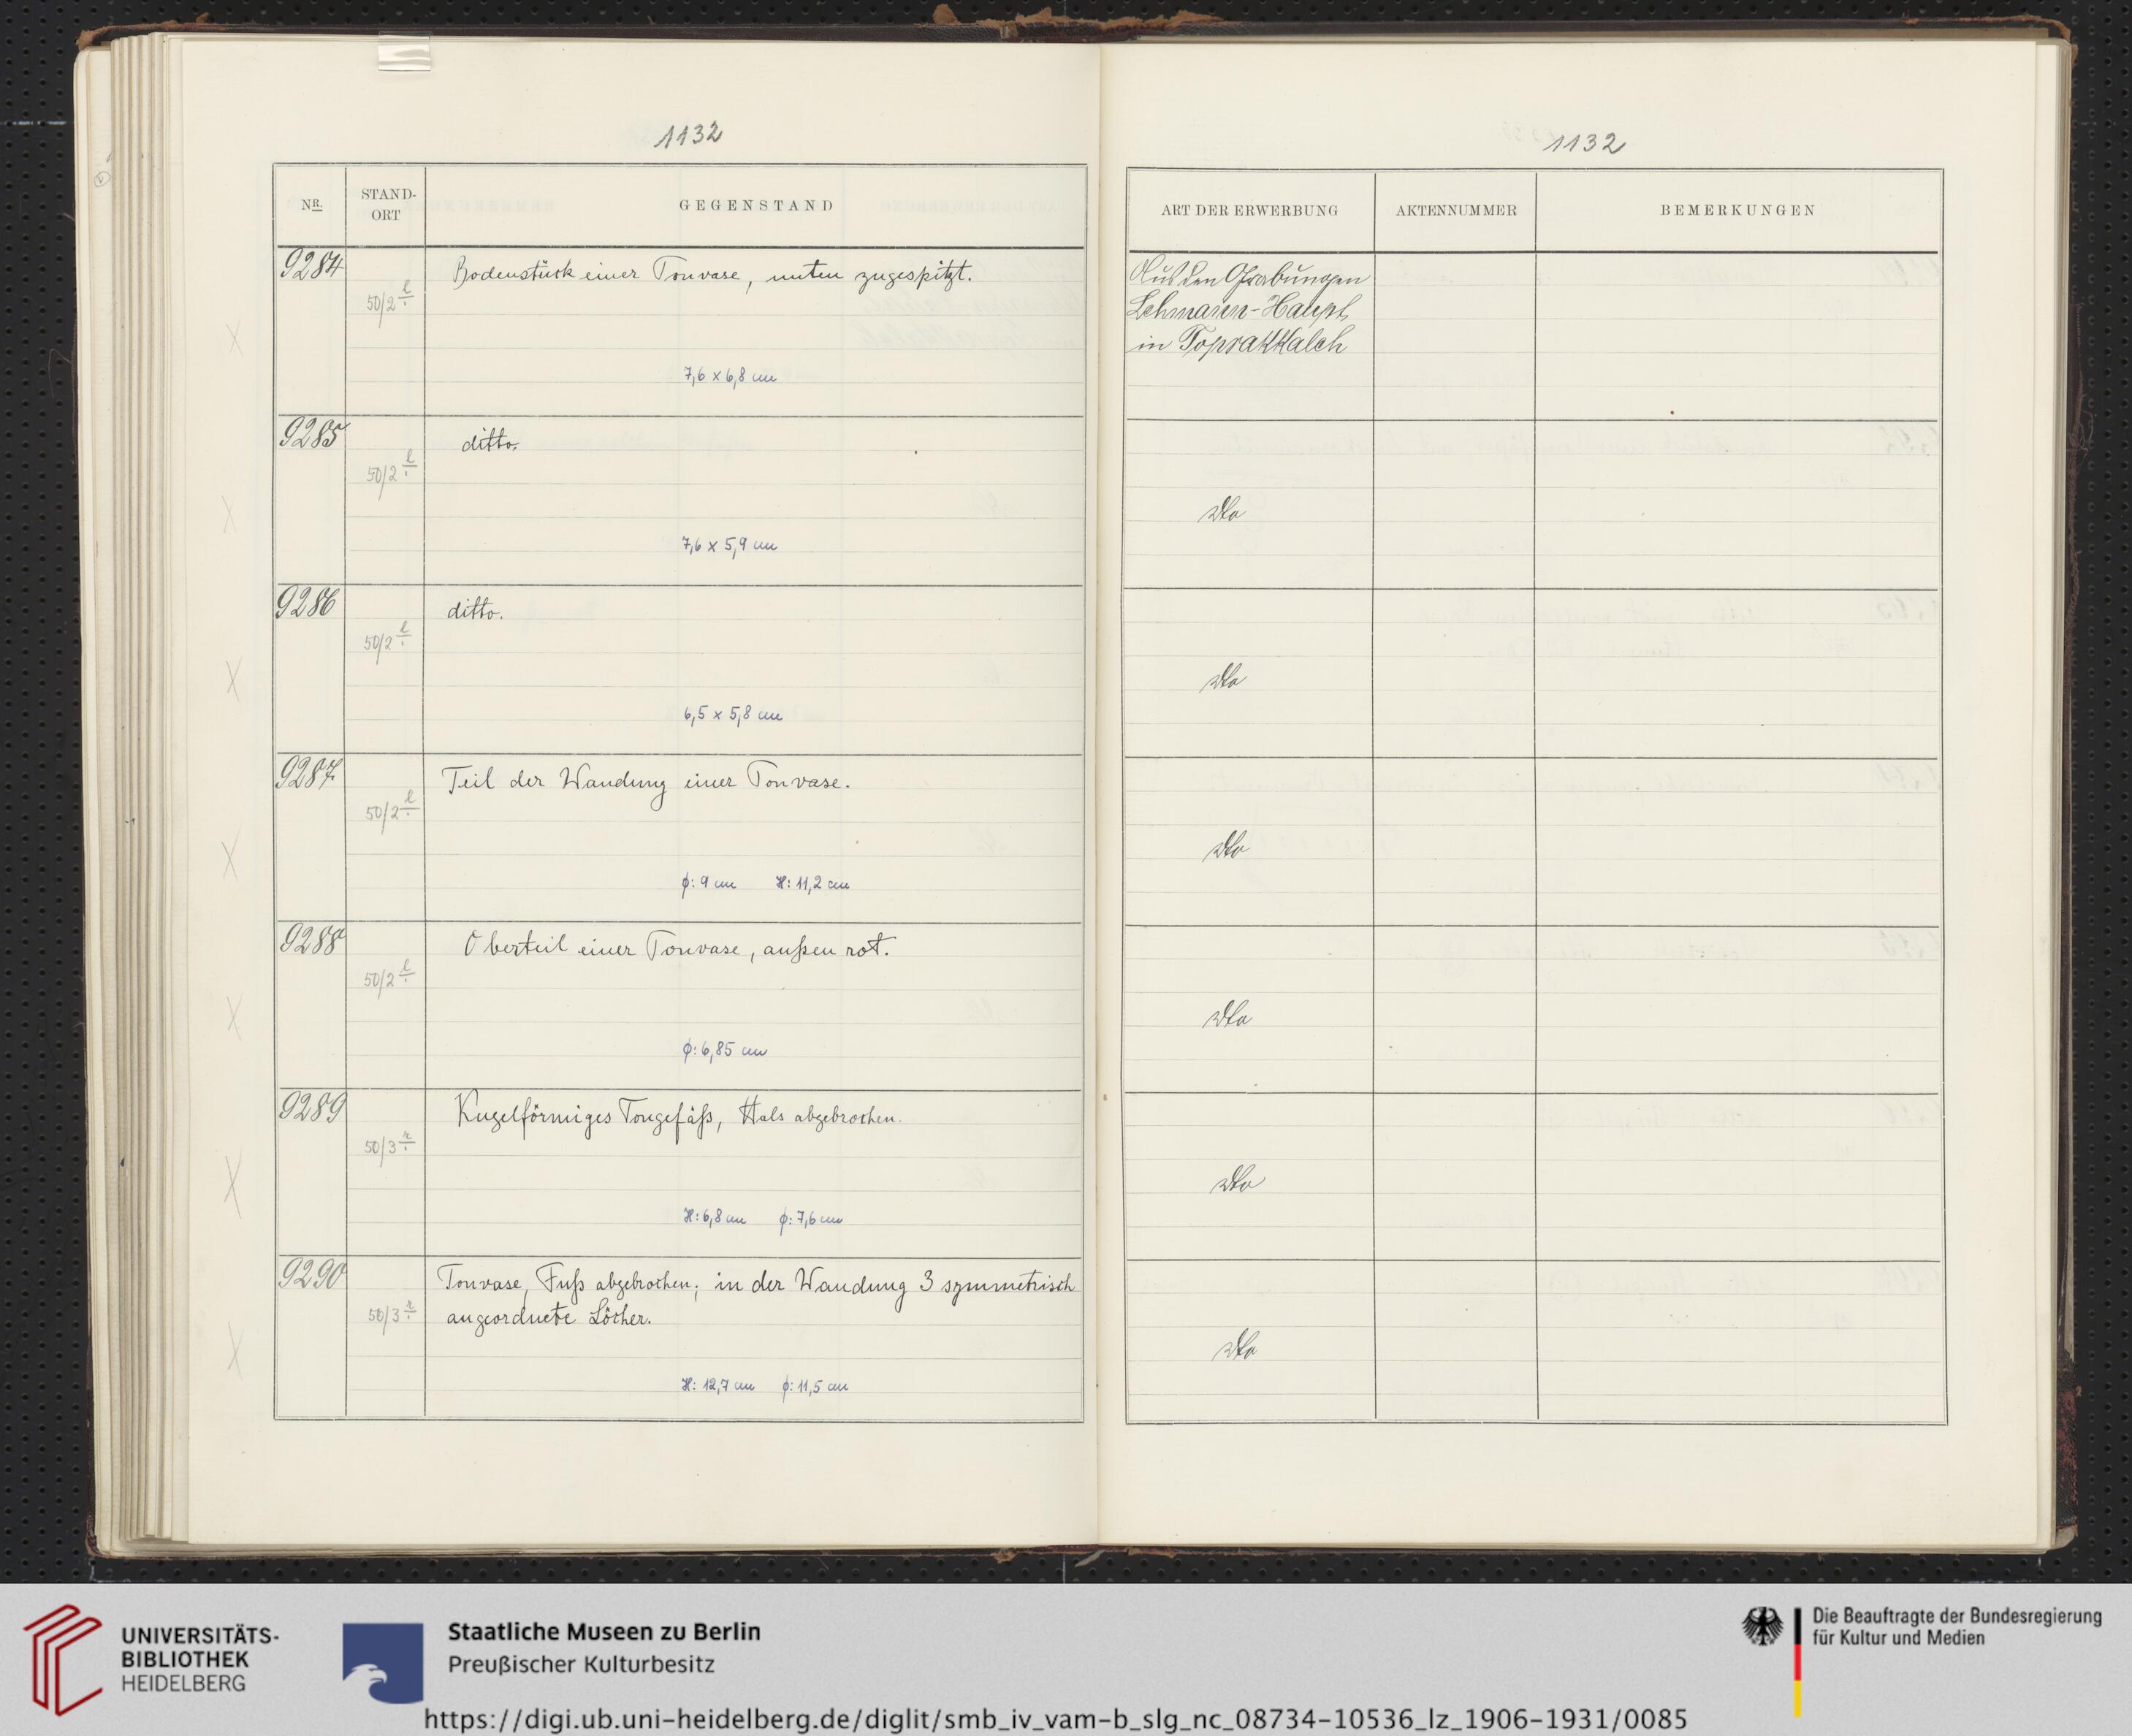 1132
NR.
STAND-
ORT
GEGENSTAND
9284
50/2 l
Bodenstück einer Tonvase, unten zugespitzt.
7,6 x 6,8 cm
9285
50/2 l
ditto.
7,6 x 5,9 cm
9286
50/2 l
ditto.
6,5 x 5,8 cm
9287
50/2 l
Teil der Wandung einer Tonvase.
ϕ: 9 cm H: 11,2 cm
9288
50/2 l
Oberteil einer Tonvase, außen rot.
ϕ: 6,85 cm
9289
50/3 r
Kugelförmiges Tongefäß, Hals abgebrochen.
H: 6,8 cm ϕ: 7,6 cm
9290
50/3 r
Tonvase, Fuß abgebrochen; in der Wandung 3 symmetrisch
angeordnete Löcher.
H: 12,7 cm ϕ: 11,5 cm
1132
ART DER ERWERBUNG
AKTENNUMMER
BEMERKUNGEN
Aus den Grabungen
Lehmann-Haupt
in Toprakkaleh
dto
dto
dto
dto
dto
dto
UNIVERSITÄTS-
BIBLIOTHEK
HEIDELBERG
Staatliche Museen zu Berlin
Preußischer Kulturbesitz
Die Beauftragte der Bundesregierung
für Kultur und Medien
https://digi.ub.uni-heidelberg.de/diglit/smb_iv_vam-b_slg_nc_08734-10536_lz_1906-1931/0085